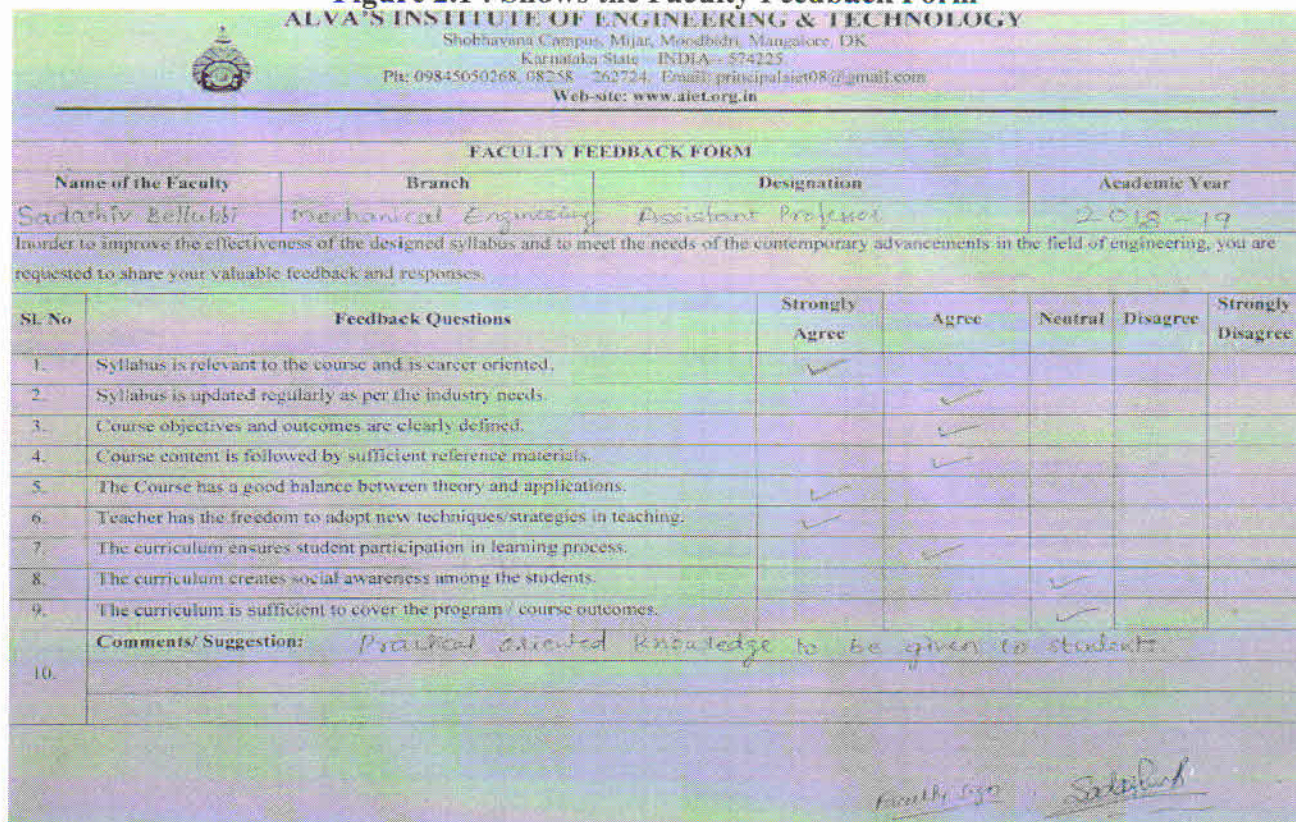 Figure 2.1 : Shows the Faculty Feedback Form
ALVA'S INSTITUTE OF ENGINEERING & TECHNOLOGY
Shobhavana Campus, Mijar, Moodbidri, Mangalore, DK
Karnataka State - INDIA - 574225.
Ph: 09845050268, 08258 - 262724, Email: principalaiet08@gmail.com
Web-site: www.aiet.org.in
FACULTY FEEDBACK FORM
Name of the Faculty Branch Designation Academic Year
Sadashiv Bellubbi Mechanical Engineering Assistant Professor 2018-19
Inorder to improve the effectiveness of the designed syllabus and to meet the needs of the contemporary advancements in the field of engineering, you are
requested to share your valuable feedback and responses.
Sl. No Feedback Questions Strongly Agree Agree Neutral Disagree Strongly Disagree
1. Syllabus is relevant to the course and is career oriented. ✓
2. Syllabus is updated regularly as per the industry needs. ✓
3. Course objectives and outcomes are clearly defined. ✓
4. Course content is followed by sufficient reference materials. ✓
5. The Course has a good balance between theory and applications. ✓
6. Teacher has the freedom to adopt new techniques/strategies in teaching. ✓
7. The curriculum ensures student participation in learning process. ✓
8. The curriculum creates social awareness among the students. ✓
9. The curriculum is sufficient to cover the program / course outcomes. ✓
10. Comments/ Suggestion: Practical oriented knowledge to be given to students
Faculty sign